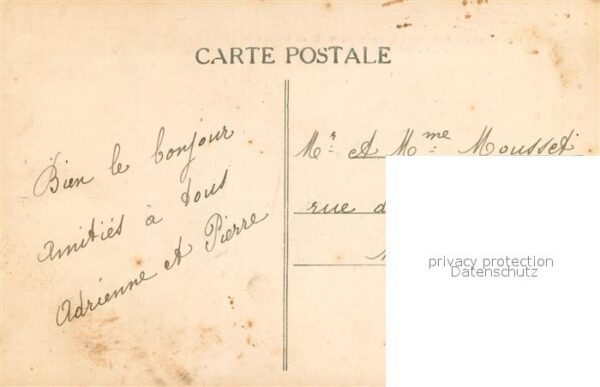 CARTE POSTALE
Bien le bonjour
Amitiés à tous
Adrienne et Pierre
Mr. et Mme. Mousset
rue d
privacy protection
Datenschutz